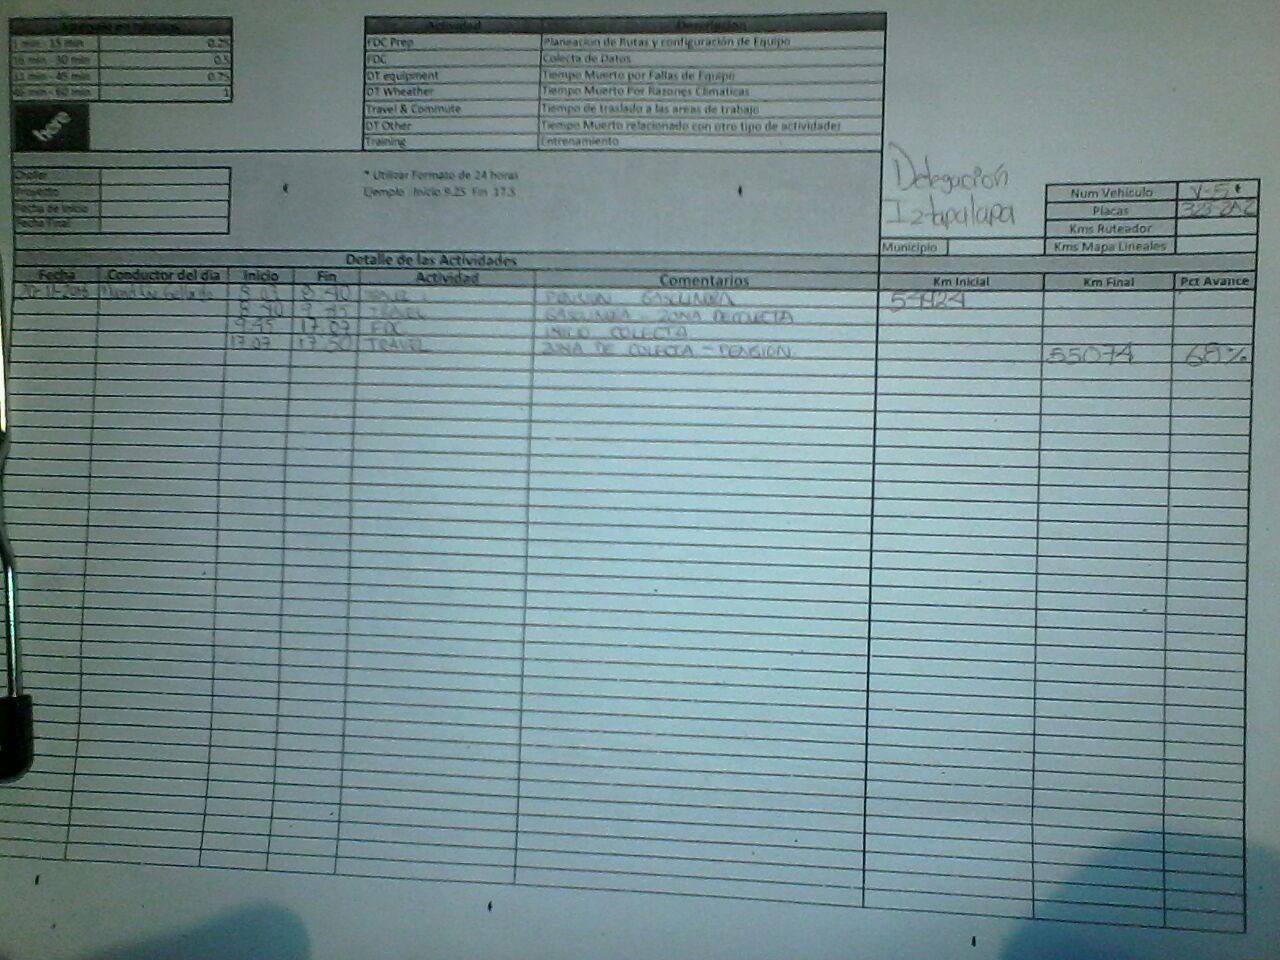 1 min - 15 min 0.25
16 min - 30 min 0.5
31 min - 45 min 0.75
46 min - 60 min 1
here
Actividad Descripcion
FDC Prep Planeacion de Rutas y configuración de Equipo
FDC Colecta de Datos
DT equipment Tiempo Muerto por Fallas de Equipo
DT Wheather Tiempo Muerto Por Razones Climaticas
Travel & Commute Tiempo de traslado a las areas de trabajo
DT Other Tiempo Muerto relacionado con otro tipo de actividades
Training Entrenamiento
Chofer
Proyecto
Fecha de Inicio
Fecha Final
* Utilizar Formato de 24 horas
Ejemplo : Inicio 9.25 Fin 17.5
Delegación
Iztapalapa
Num Vehiculo V-5
Placas
Kms Ruteador
Municipio Kms Mapa Lineales
Detalle de las Actividades
Fecha Conductor del dia Inicio Fin Actividad Comentarios Km Inicial Km Final Pct Avance
8 03 8 40 PENSION GASOLINERA 54924
8 40 9 45 TRAVEL GASOLINERA - ZONA DE COLECTA
9 45 17 07 FDC INICIO COLECTA
17 07 17 50 TRAVEL ZONA DE COLECTA - PENSION 55074 68%